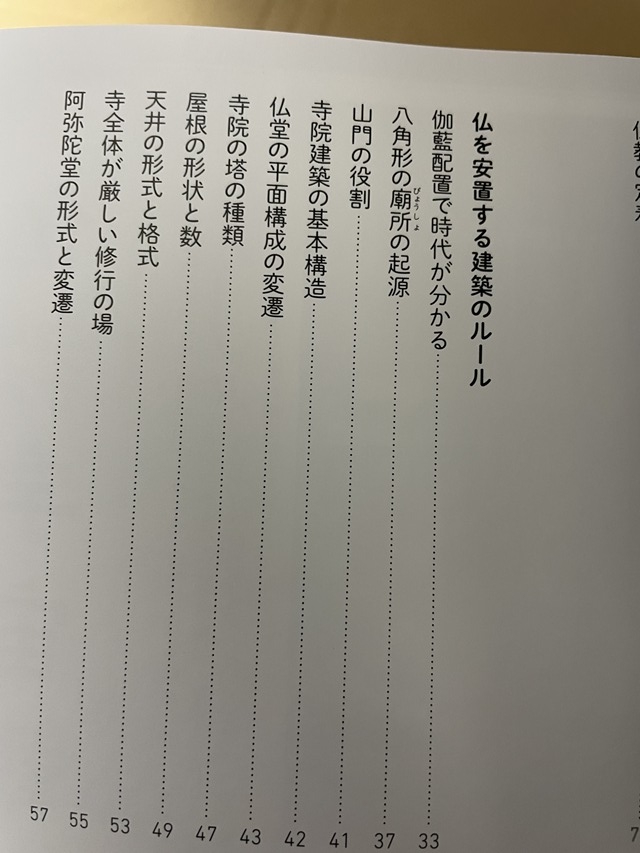 仏を安置する建築のルール
伽藍配置で時代が分かる 33
八角形の廟所の起源 37
びょうしょ
山門の役割 41
寺院建築の基本構造 42
仏堂の平面構成の変遷 43
寺院の塔の種類 47
屋根の形状と数 49
天井の形式と格式 53
寺全体が厳しい修行の場 55
阿弥陀堂の形式と変遷 57